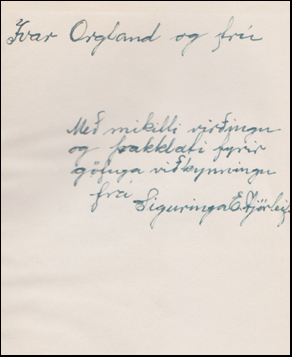 Ívar Orgland og frú
Með mikilli virðingu
og þakklæti fyrir
göfuga viðkynningu
frá
Siguringa E. Hjörleifs